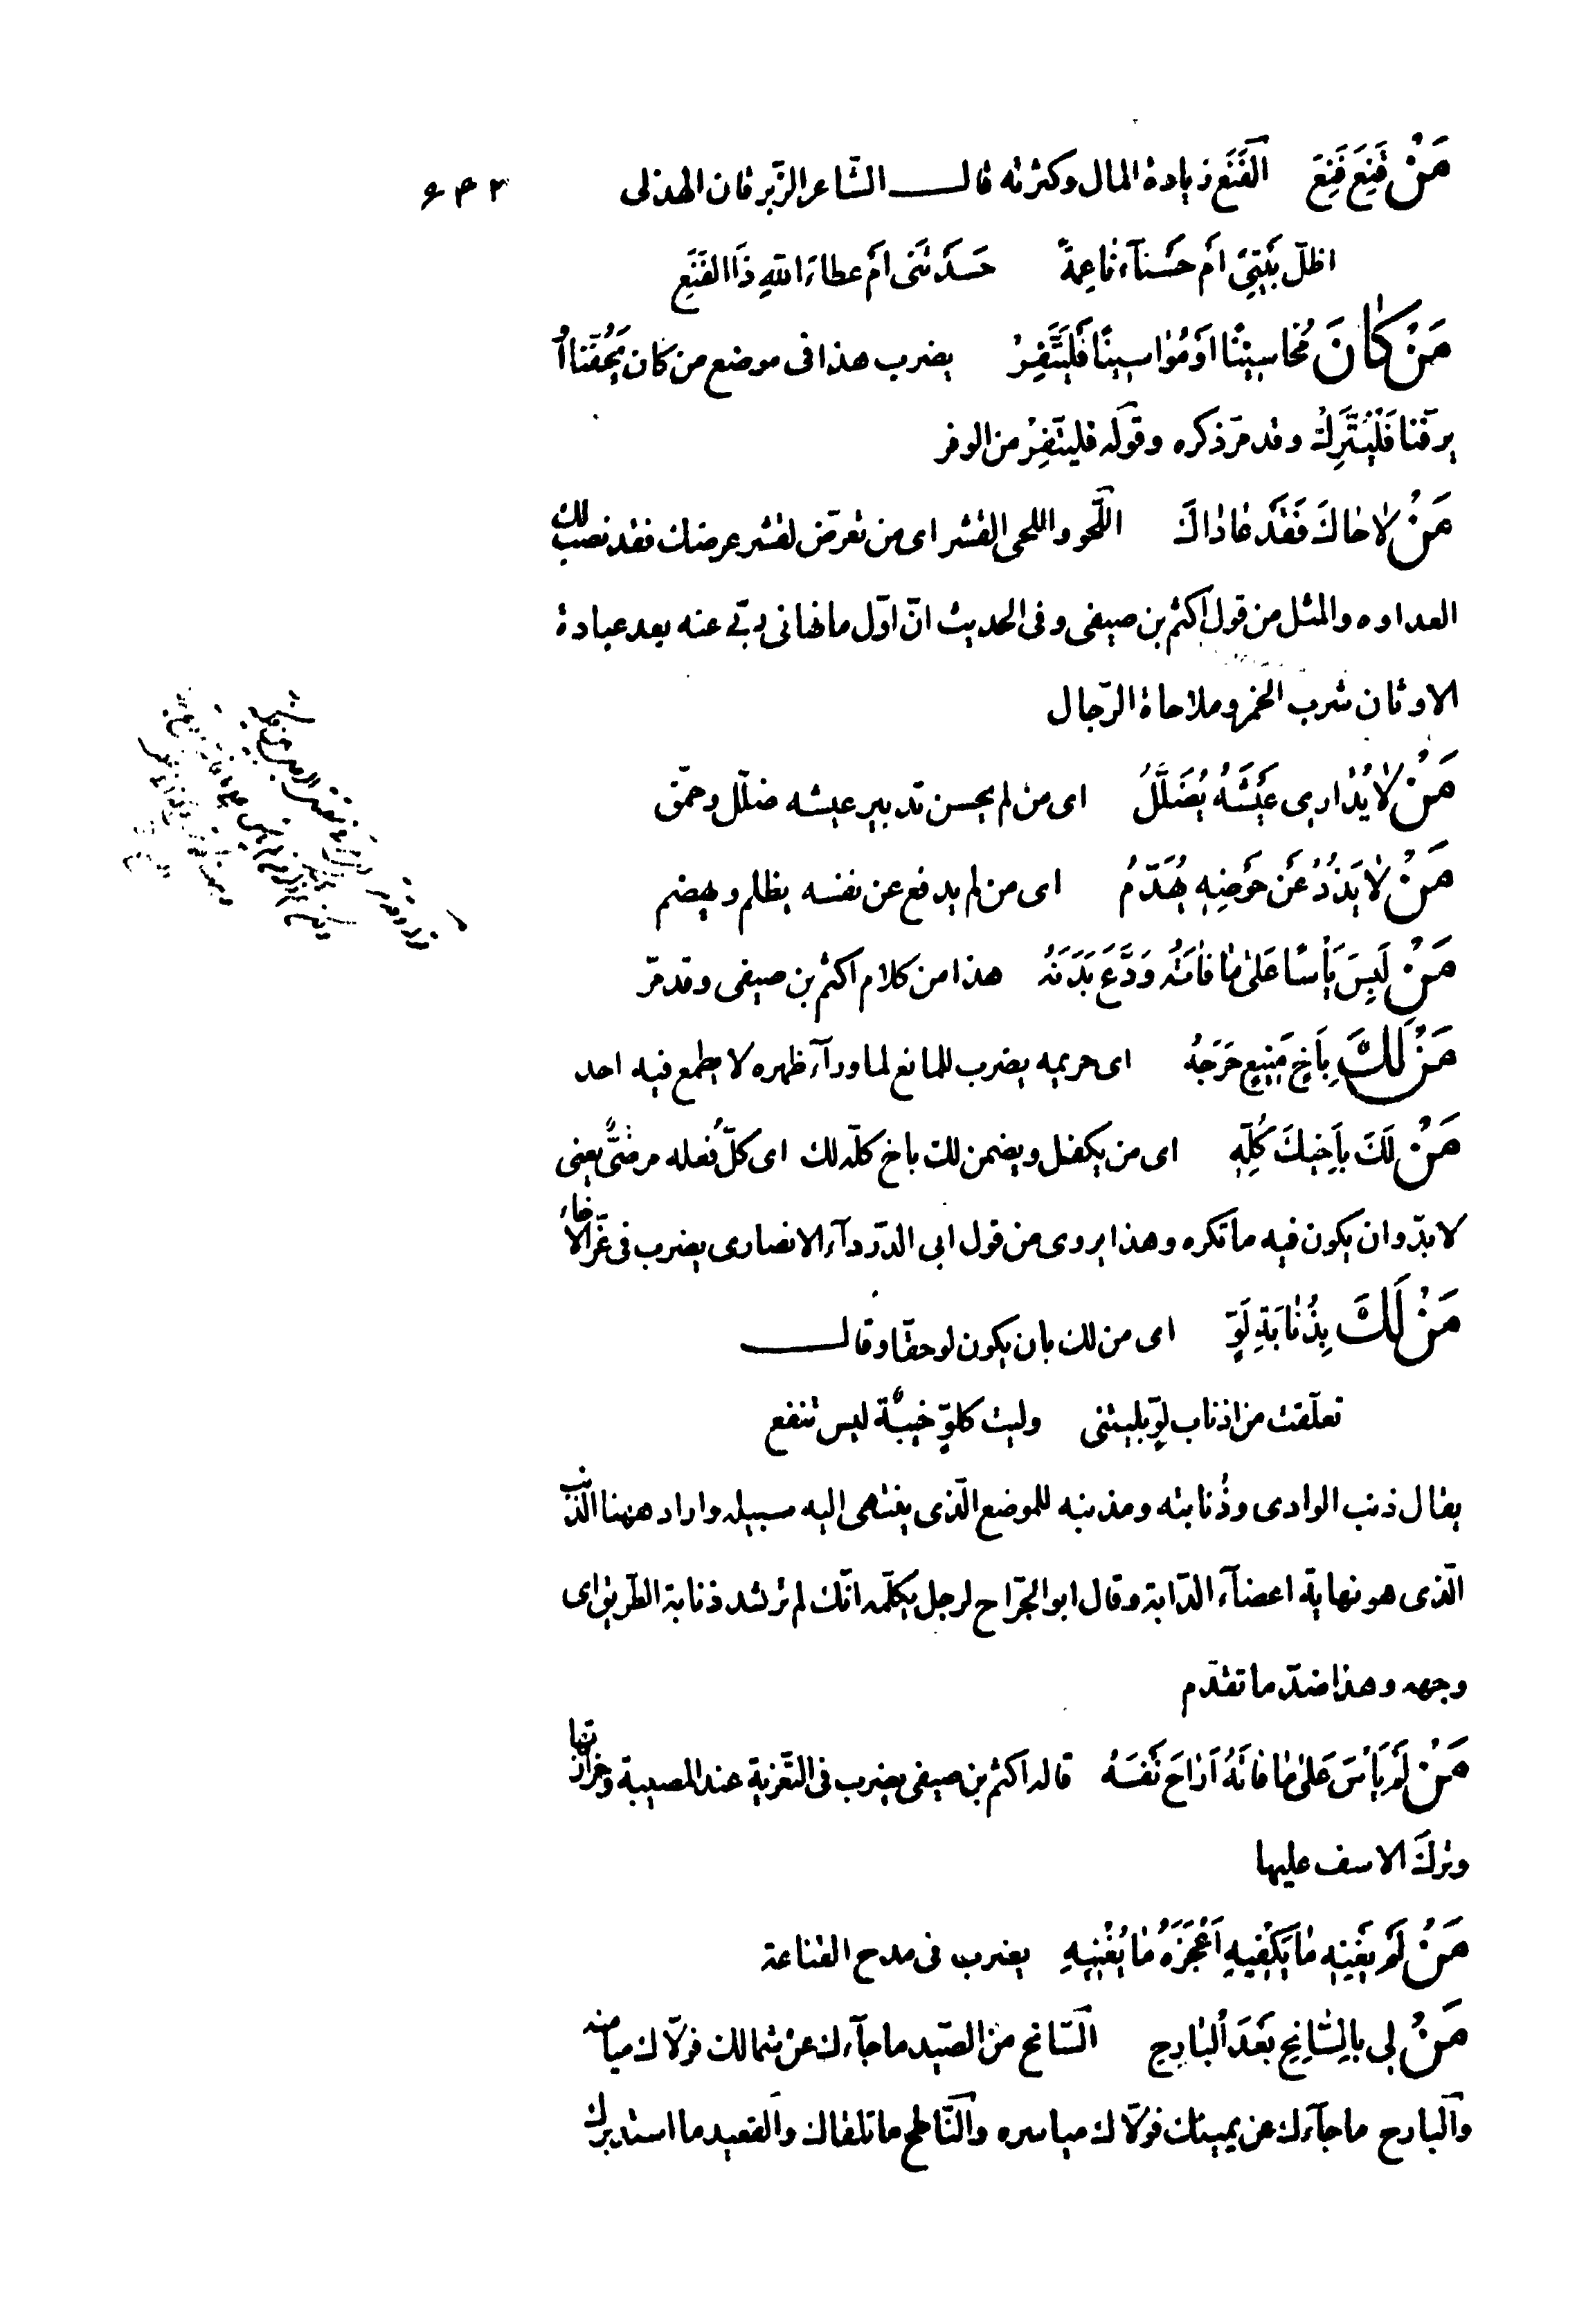 مَنْ قَنِعَ فَنِعَ الْفَنَع زيادة المال وكثرته قال الشّاعر الزّبرقان الهذلى
اظلّ بَيْتِىْ امْ حَسْنآء ناعِمةً حَسَدْتَنى امْ عطاءَ اللهِ ذَا الفَنَعِ
مَنْ كانَ مُحاسِيْنًا اوْ مُواسِينًا فَلْيَتَّفِرْ يضرب هذا فى موضع من كان يَحُفّنا اوْ
يرفّنا فَلْيُتَّرِكْ وقد مرّ ذكره وقوله فليتّفِرْ من الوفر
مَنْ لاحاكَ فَقَدْ عاداكَ اللّحو واللحى القشر اى من تعرّض لقشر عرضك فقد نصب لك
العداوه والمثل من قول اكثم بن صيفى وفى الحديث انّ اوّل ما نهانى ربّى عنه بعد عبادة
الاوثان شرب الخمر وملاحاة الرّجال
مَنْ لا يُدارى عَيْشَهُ يُضَلَّلُ اى من لم يحسن تدبير عيشه ضلّل وحمّق
مَنْ لا يَذُدْ عَنْ حَوْضِهِ يُهَدَّمُ اى من لم يدفع عن نفسه يظلم ويهضم
مَنْ لَبِسَ يَأْسًا عَلى ما فاتَهُ وَدَّعَ بَدَنَهُ هذا من كلام اكثم بن صيفى وقد مرّ
مَنْ لَكَ بِاَخٍ مَنِيعٍ حَرَجُهُ اى حريمه يضرب للمانع لما ورآء ظهره لا يطمع فيه احد
مَنْ لَكَ بِاَخِيكَ كُلِّهِ اى من يكفل ويضمن لك باخ كلّه لك اى كلّ فُعله مرضىٌّ يعنى
لا بدّ وان يكون فيه ما تكره وهذا يروى من قول ابى الدّردآء الانصارى يضرب فى عزّ الاخاء
مَنْ لَكَ بِذُنابَةِ لَوٍّ اى من لك بان يكون لو حقّا وقال
تعلّقت من اذناب لوٍّ بليتنى وليت كلوٍّ خيبةٌ ليس تنفع
يقال ذنب الوادى وذُنابته ومذنبه للموضع الّذى ينتهى اليه سبيله واراد ههنا الذّنب
الّذى هو نهاية اعضآء الدّابة وقال ابو الجرّاح لرجل يكلّمه انّك لم ترشد ذنابة الطّريق اى
وجهه وهذا ضدّ ما تقدّم
مَنْ لَمْ يَأْسَ عَلى ما فاتَهُ اَراحَ نَفْسَهُ قاله اكثم بن صيفى يضرب فى التّعزية عند المصيبة وحرارتها
وترك الاسف عليها
مَنْ لَمْ يُغْنِهِ ما يَكْفِيهِ اَعْجَزَهُ ما يُغْنِيهِ يضرب فى مدح القناعة
مَنْ لى بِالسّانِحِ بَعْدَ الْبارِحِ السّانح من الصّيد ما جآءك عن شمالك فولّاك ميامنه
والبارح ما جآءك عن يمينك فولّاك مياسره والنّاطح ما تلقاك والقعيد ما استدبرك